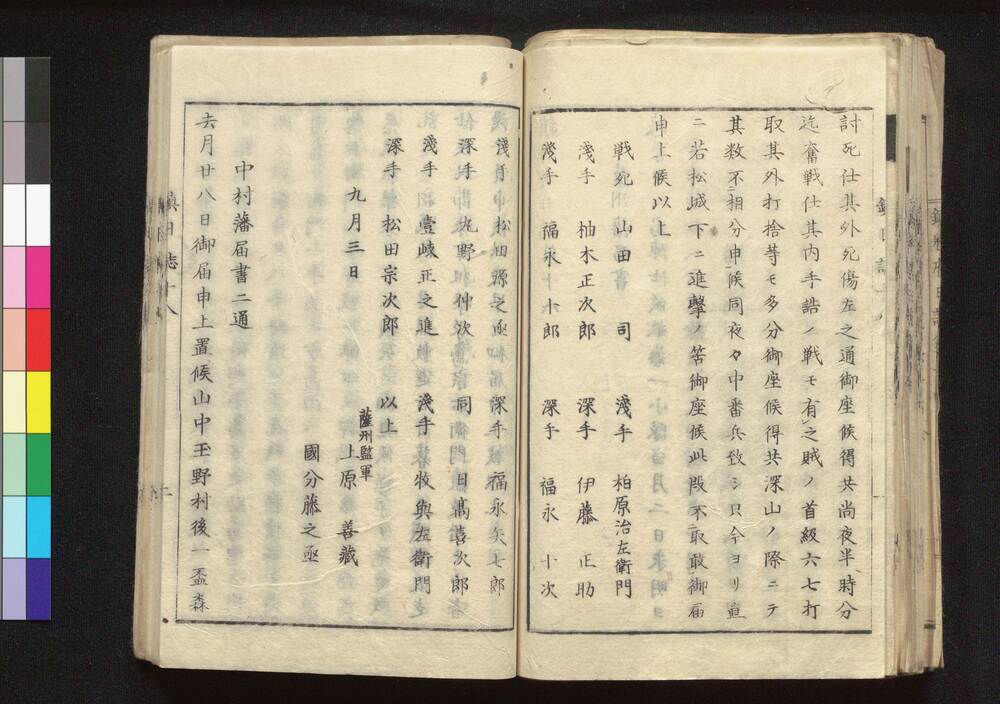 討死仕其外死傷左之通御座候得共尚夜半時分
迄奮戦仕其内手詰ノ戦モ有之賊ノ首級六七打
取其外打捨等モ多分御座候得共深山ノ際ニテ
其数不相分申候同夜々中番兵致シ只今ヨリ直
ニ若松城下ニ進撃ノ筈御座候此段不取敢御届
申上候以上
戦死 山田 司 淺手 柏原治左衛門
淺手 柚木正次郎 深手 伊藤 正助
淺手 福永十郎 深手 福永 十次
淺手 松田源之亟 深手 福永矢七郎
深手 丸野仲次 同 日髙喜次郎
淺手 壹岐正之進 淺手 牧與左衛門
深手 松田宗次郎 以上
九月三日
薩州監軍 上原 善藏
國分藤之亟
中村藩届書二通
去月廿八日御届申上置候山中玉野村後一盃森
鎮日志十八